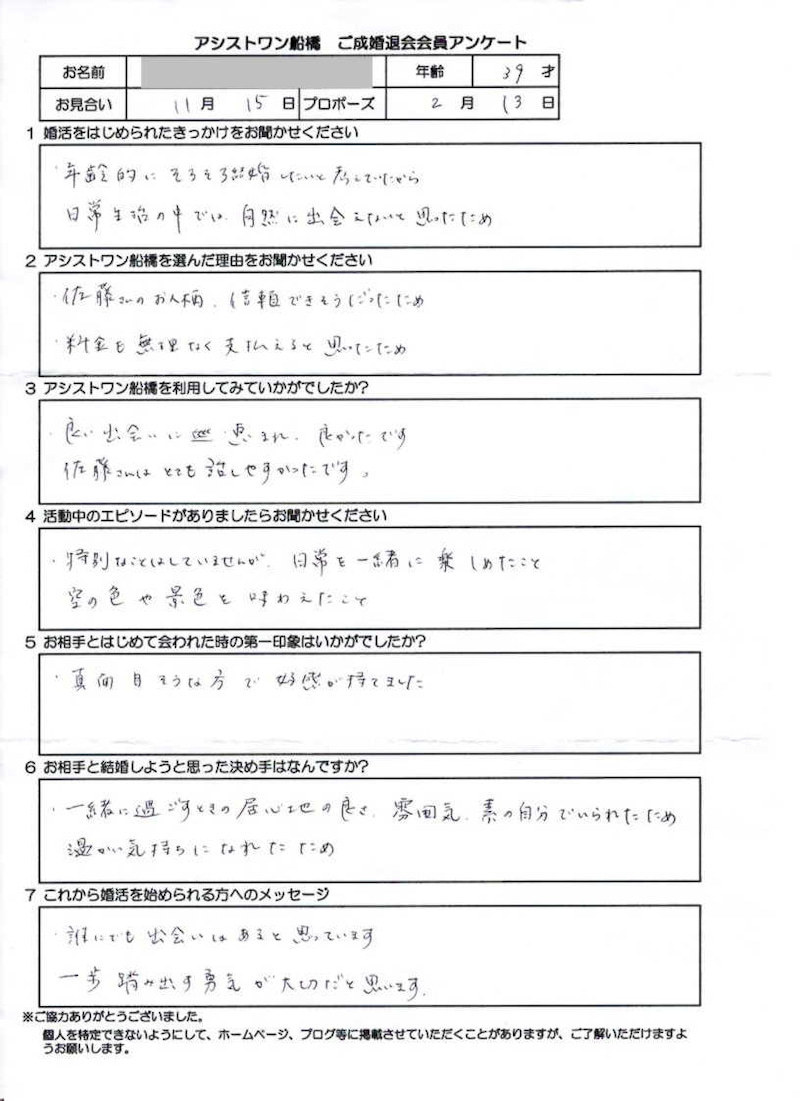 アシストワン船橋 ご成婚退会会員アンケート
お名前 年齢 39 才
お見合い 11 月 15 日 プロポーズ 2 月 13 日
1 婚活をはじめられたきっかけをお聞かせください
・年齢的にそろそろ結婚したいと考えていたから
日常生活の中では、自然に出会えないと思ったため
2 アシストワン船橋を選んだ理由をお聞かせください
・佐藤さんのお人柄、信頼できそうだったため
・料金も無理なく支払えると思ったため
3 アシストワン船橋を利用してみていかがでしたか?
・良い出会いに恵まれ、良かったです
佐藤さんはとても話しやすかったです。
4 活動中のエピソードがありましたらお聞かせください
・特別なことはしていませんが、日常を一緒に楽しめたこと
空の色や景色を味わえたこと
5 お相手とはじめて会われた時の第一印象はいかがでしたか?
・真面目そうな方で好感が持てました
6 お相手と結婚しようと思った決め手はなんですか?
・一緒に過ごすときの居心地の良さ、雰囲気、素の自分でいられたため
温かい気持ちになれたため
7 これから婚活を始められる方へのメッセージ
・誰にでも出会いはあると思っています
一歩踏み出す勇気が大切だと思います。
※ご協力ありがとうございました。
個人を特定できないようにして、ホームページ、ブログ等に掲載させていただくことがありますが、ご了解いただけますよ
うお願いします。